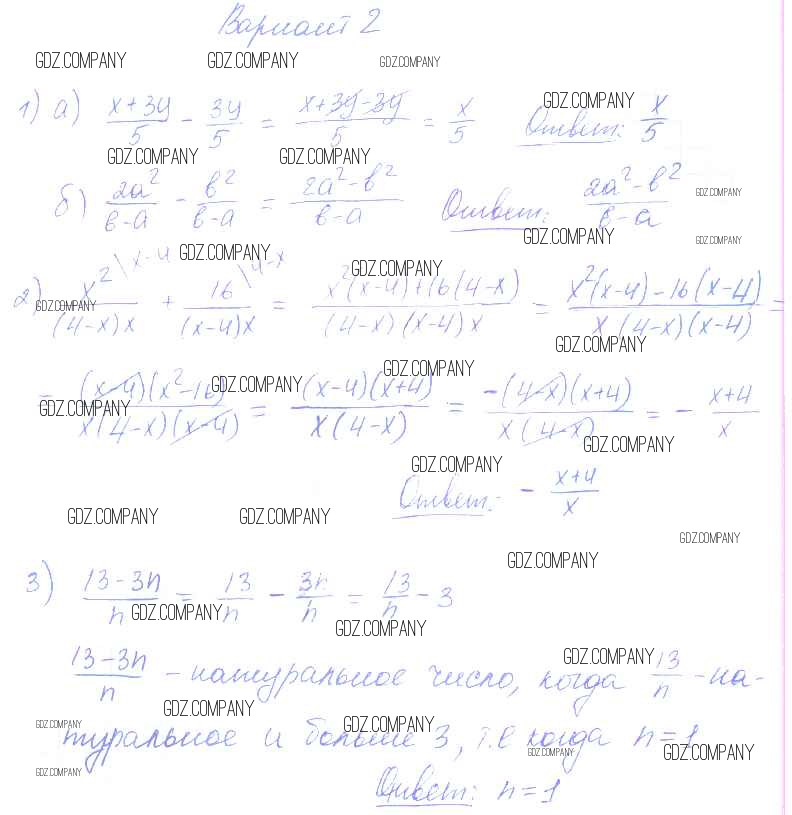 Вариант 2
GDZ.COMPANY GDZ.COMPANY GDZ.COMPANY
1) а) (x+3y)/5 - 3y/5 = (x+3y-3y)/5 = x/5 Ответ: x/5
GDZ.COMPANY
GDZ.COMPANY GDZ.COMPANY
б) 2a²/(в-a) - в²/(в-a) = (2a²-в²)/(в-a) Ответ: (2a²-в²)/(в-a)
GDZ.COMPANY
GDZ.COMPANY GDZ.COMPANY
GDZ.COMPANY GDZ.COMPANY
2) x²\x-4/(4-x)x + 16\4-x/(x-4)x = (x²(x-4)+16(4-x))/((4-x)(x-4)x) = (x²(x-4)-16(x-4))/(x(4-x)(x-4)) =
GDZ.COMPANY GDZ.COMPANY
GDZ.COMPANY GDZ.COMPANY
= ((x-4)(x²-16))/(x(4-x)(x-4)) = ((x-4)(x+4))/(x(4-x)) = (-(4-x)(x+4))/(x(4-x)) = - (x+4)/x
GDZ.COMPANY GDZ.COMPANY
GDZ.COMPANY
Ответ: - (x+4)/x
GDZ.COMPANY GDZ.COMPANY GDZ.COMPANY
GDZ.COMPANY
3) (13-3n)/n = 13/n - 3n/n = 13/n - 3
GDZ.COMPANY GDZ.COMPANY
GDZ.COMPANY
(13-3n)/n - натуральное число, когда 13/n - на-
GDZ.COMPANY GDZ.COMPANY GDZ.COMPANY
туральное и больше 3, т.е когда n=1
GDZ.COMPANY GDZ.COMPANY
GDZ.COMPANY
Ответ: n=1